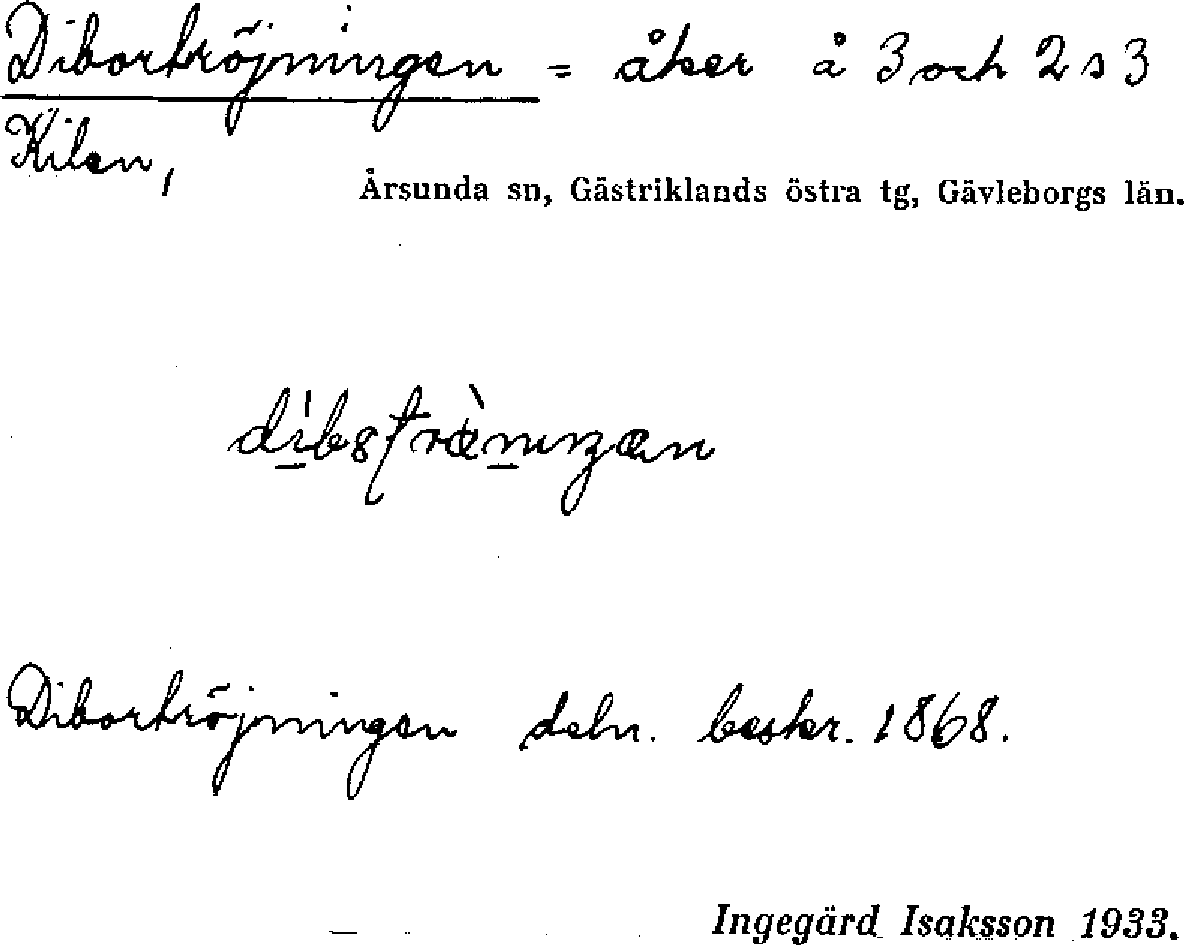 Dibortröjningen = åker å 3 och 2 s 3
Kilen,
Årsunda sn, Gästriklands östra tg, Gävleborgs län.
Dibortröjningen deln. beskr. 1868.
Ingegärd Isaksson 1933.